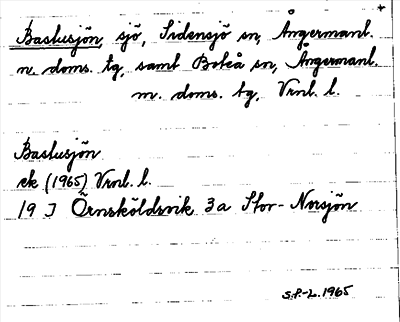 +
Bastusjön, sjö, Sidensjö sn, Ångermanl.
n. doms. tg, samt Boteå sn, Ångermanl.
m. doms. tg, Vrnl. l.
Bastusjön
ek (1965) Vrnl. l.
19 J Örnsköldsvik 3a Stor-Norsjön
S.P-L. 1965